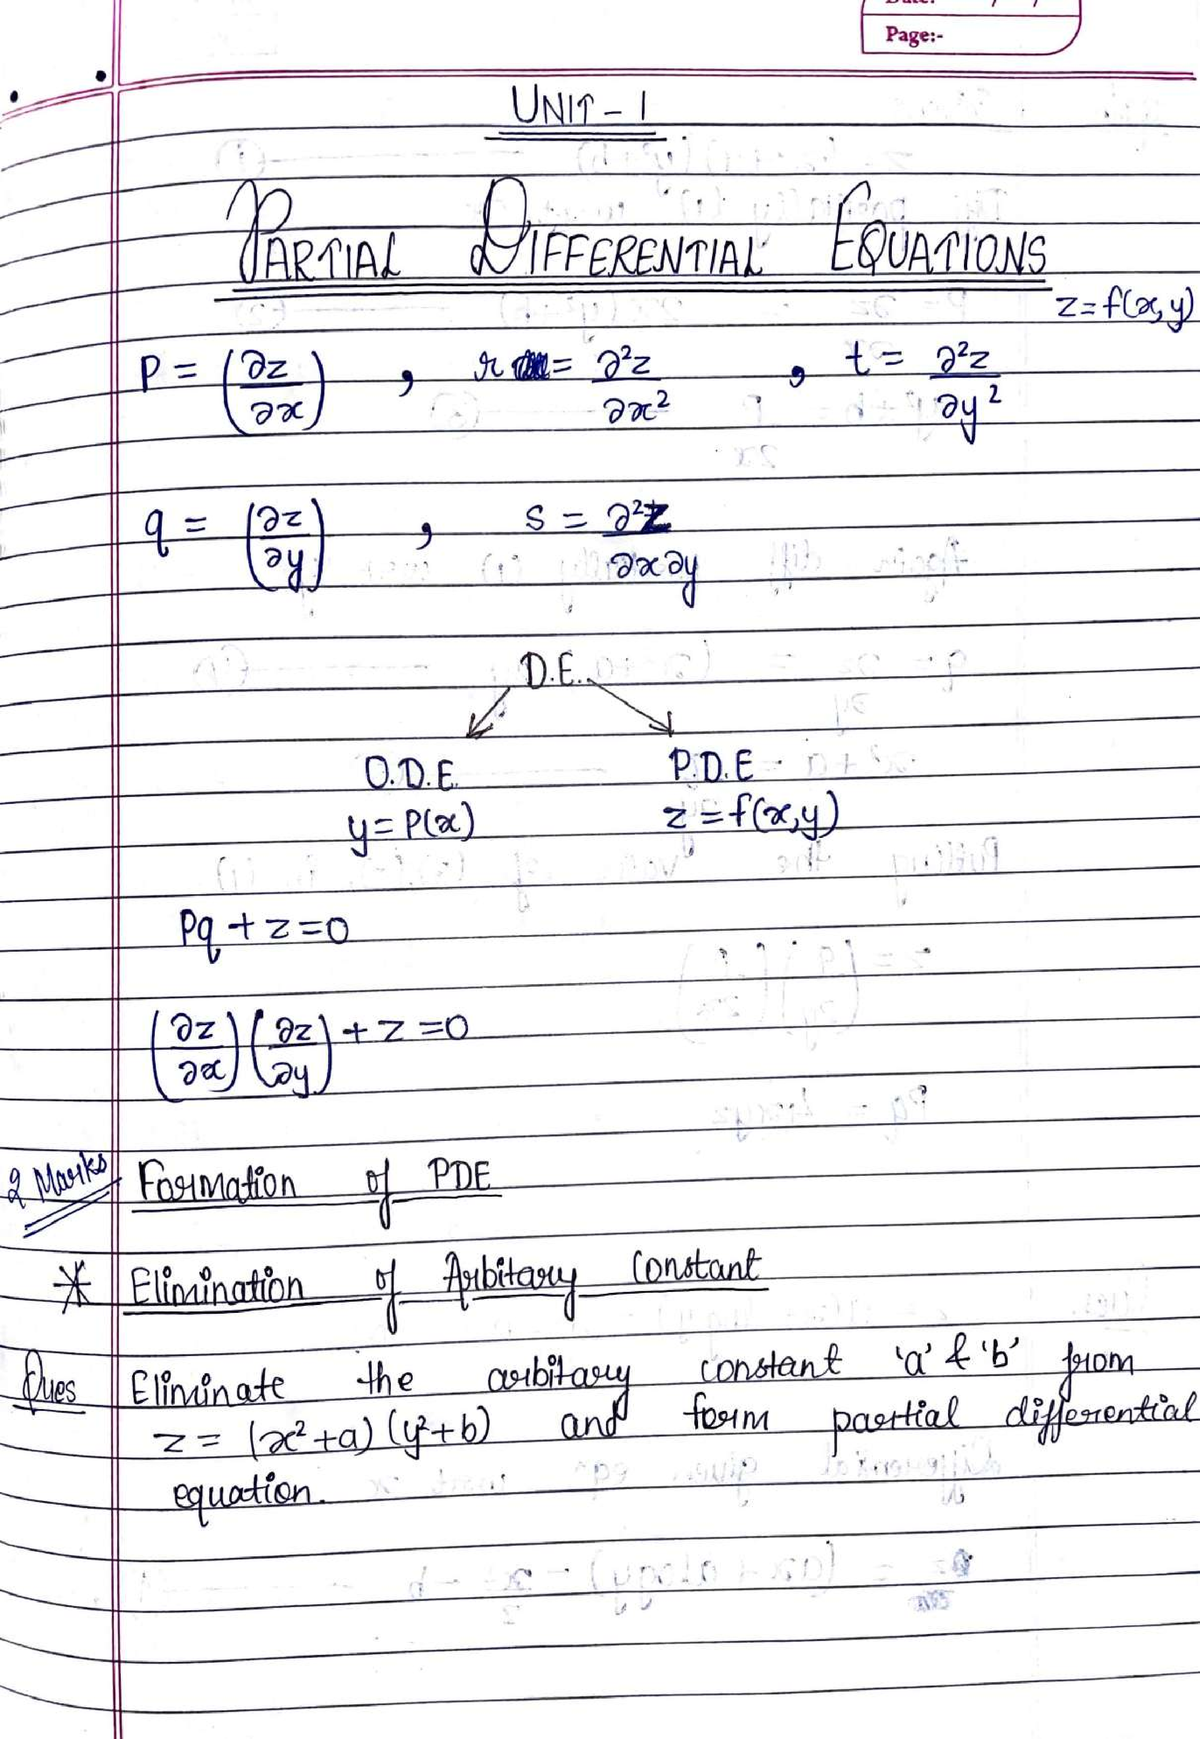 Page:-
UNIT - 1
PARTIAL DIFFERENTIAL EQUATIONS
z = f(x, y)
P = (∂z/∂x) , r = ∂²z/∂x² , t = ∂²z/∂y²
q = (∂z/∂y) , s = ∂²z/∂x∂y
D.E.
O.D.E. P.D.E
y = P(x) z = f(x,y)
Pq + z = 0
(∂z/∂x)(∂z/∂y) + z = 0
2 Marks Formation of PDE
* Elimination of Arbitary Constant
Ques Eliminate the arbitary constant 'a' & 'b' from
z = (x² + a) (y² + b) and form partial differential
equation.